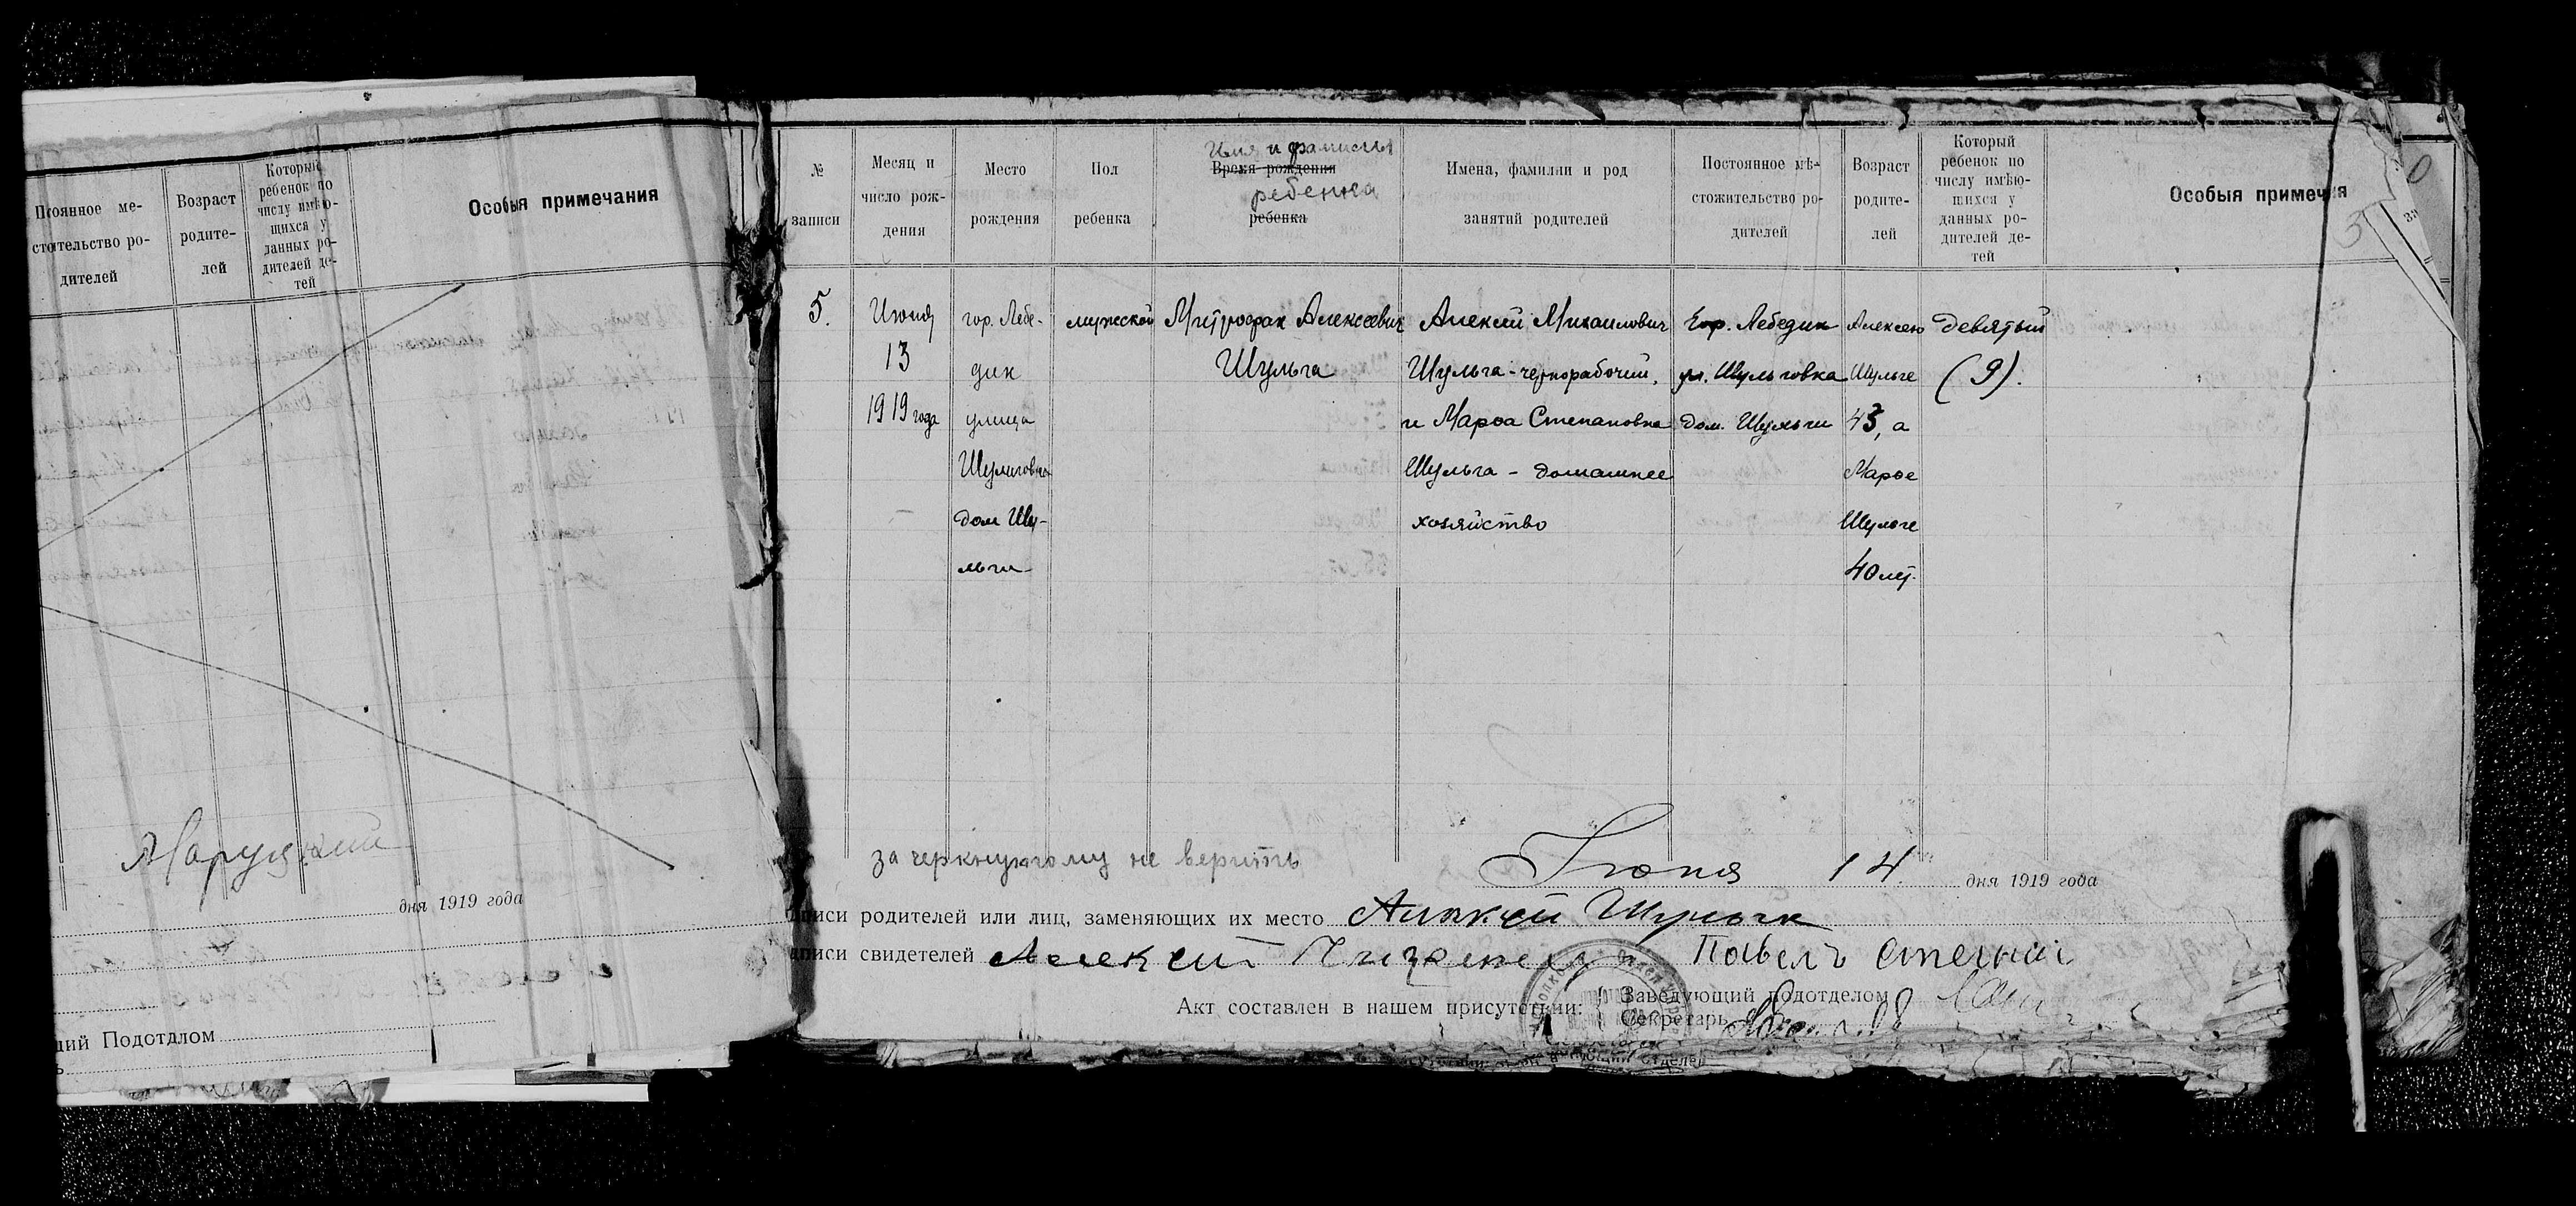 Постоянное ме-
стожительство ро-
дителей
Возраст
родите-
лей
Который
ребенок по
числу имѣю-
щихся у
данных ро-
дителей де-
тей
Особыя примечания
дня 1919 года
щий Подотдлом
№
записи
Месяц и
число рож-
дения
Место
рождения
Пол
ребенка
Имя и фамилия
Время рождения
ребенка
ребенка
Имена, фамилии и род
занятий родителей
Постоянное мѣ-
стожительство ро-
дителей
Возраст
родите-
лей
Который
ребенок по
числу имѣю-
щихся у
данных ро-
дителей де-
тей
Особыя примечия
5.
Июня
13
1919 года
гор. Лебе-
дин
улица
Шульговка
дом Шу-
льги
мужской
Митрофан Алексеевич
Шульга
Алексей Михаилович
Шульга - чернорабочий,
и Марфа Степановна
Шульга - домашнее
хозяйство
Гор. Лебедин
ул. Шульговка
дом. Шульги
Алексею
Шульге
43, а
Марфе
Шульге
40 лет.
Девятый
(9).
зачеркнутому не верить
Июня 14 дня 1919 года
писи родителей или лиц, заменяющих их место Алексей Шульга
писи свидетелей Алексей Павелъ
Акт составлен в нашем присутствии:
Заведующий подотделом
Секретарь